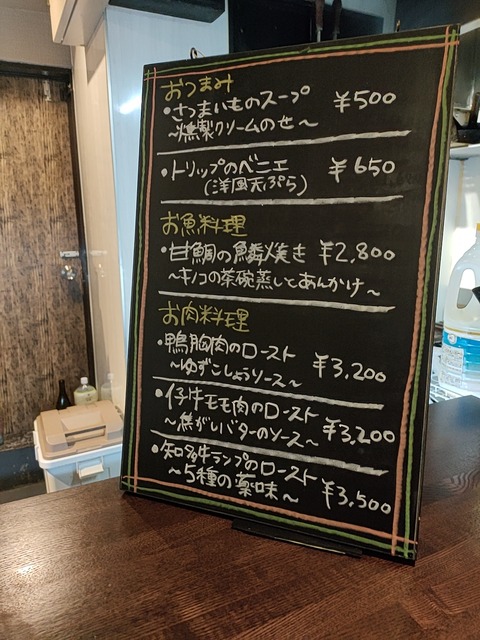 おつまみ
・さつまいものスープ ¥500
～燻製クリームのせ～
・トリップのベニエ ¥650
(洋風天ぷら)
お魚料理
・甘鯛の鱗焼き ¥2,800
～キノコの茶碗蒸しとあんかけ～
お肉料理
・鴨胸肉のロースト ¥3,200
～ゆずこしょうソース～
・仔牛モモ肉のロースト ¥3,200
～焦がしバターのソース～
・知多牛ランプのロースト ¥3,500
～5種の薬味～